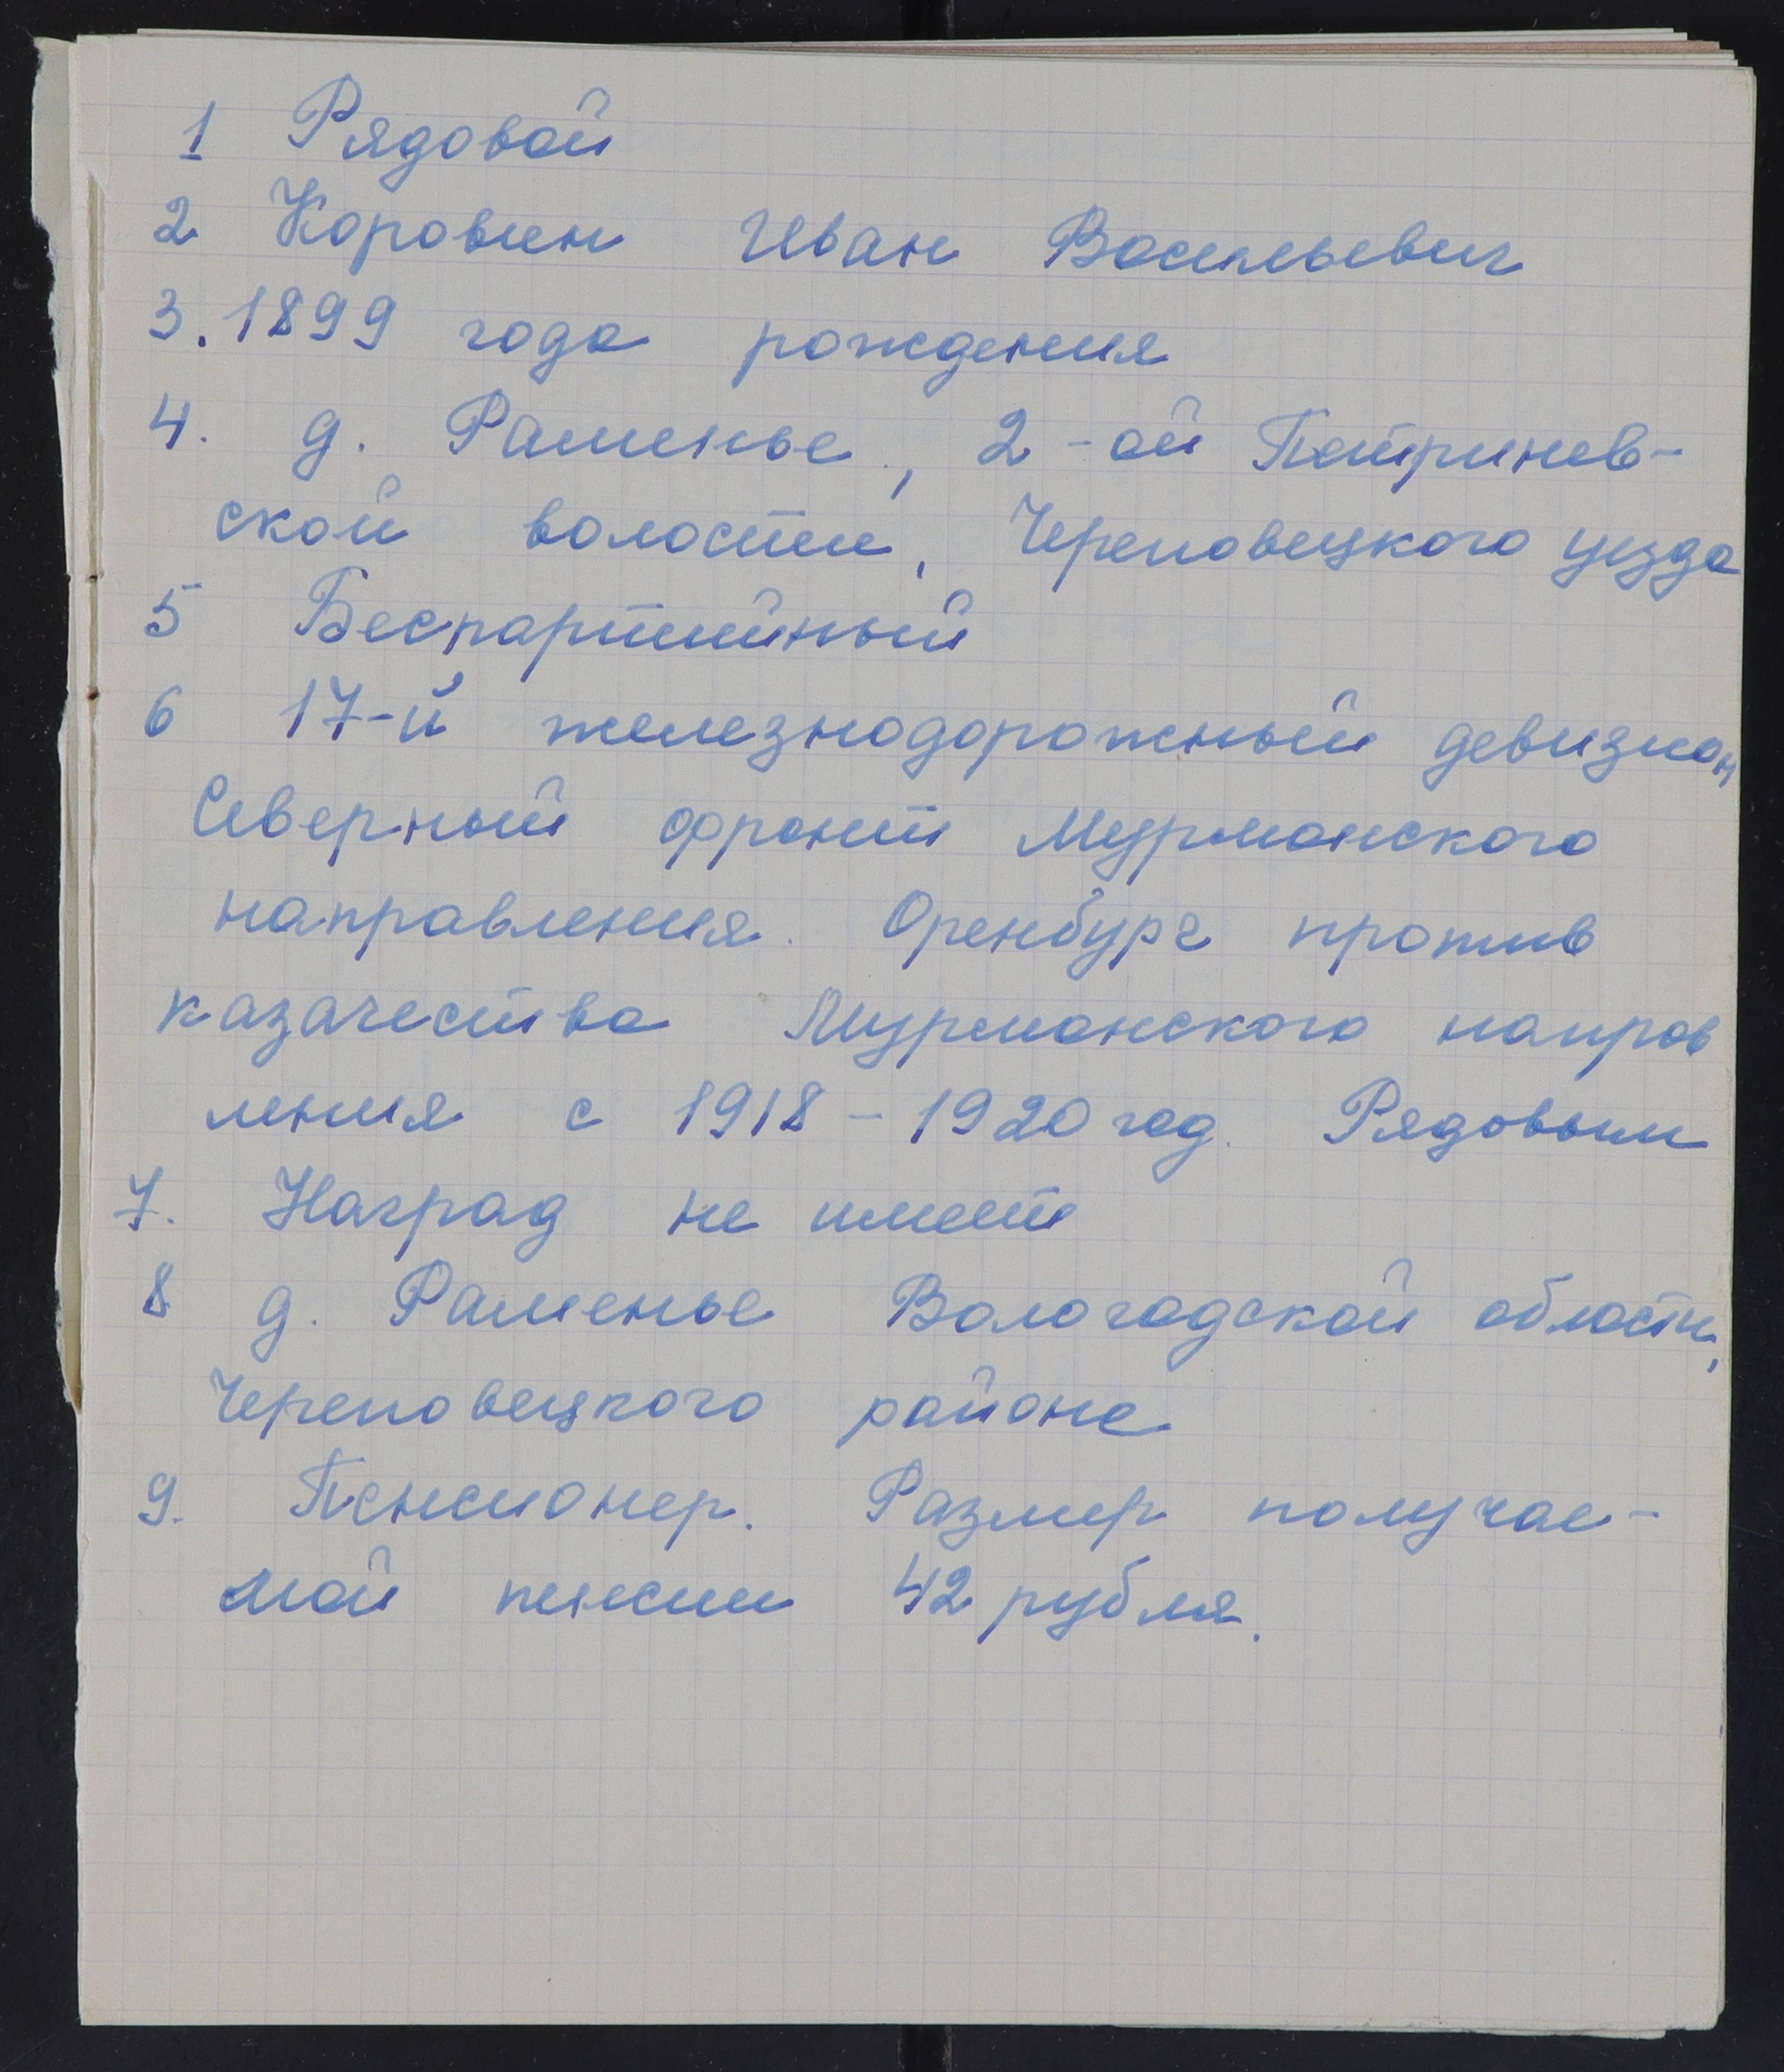 1 Рядовой
2 Коровин Иван Васильевич
3. 1899 года рождения
4. д. Раменье, 2-ой Петринев-
ской волости, Череповецкого уезда
5 Беспартийный
6 17-й железнодорожный девизион
Северный фронт Мурманского
направления. Оренбург против
казачества Мурманского направ
ления с 1918-1920 год. Рядовым
7. Наград не имеет
8 д. Раменье Вологодской области,
Череповецкого района
9. Пенсионер. Размер получае-
мой пенсии 42 рубля.